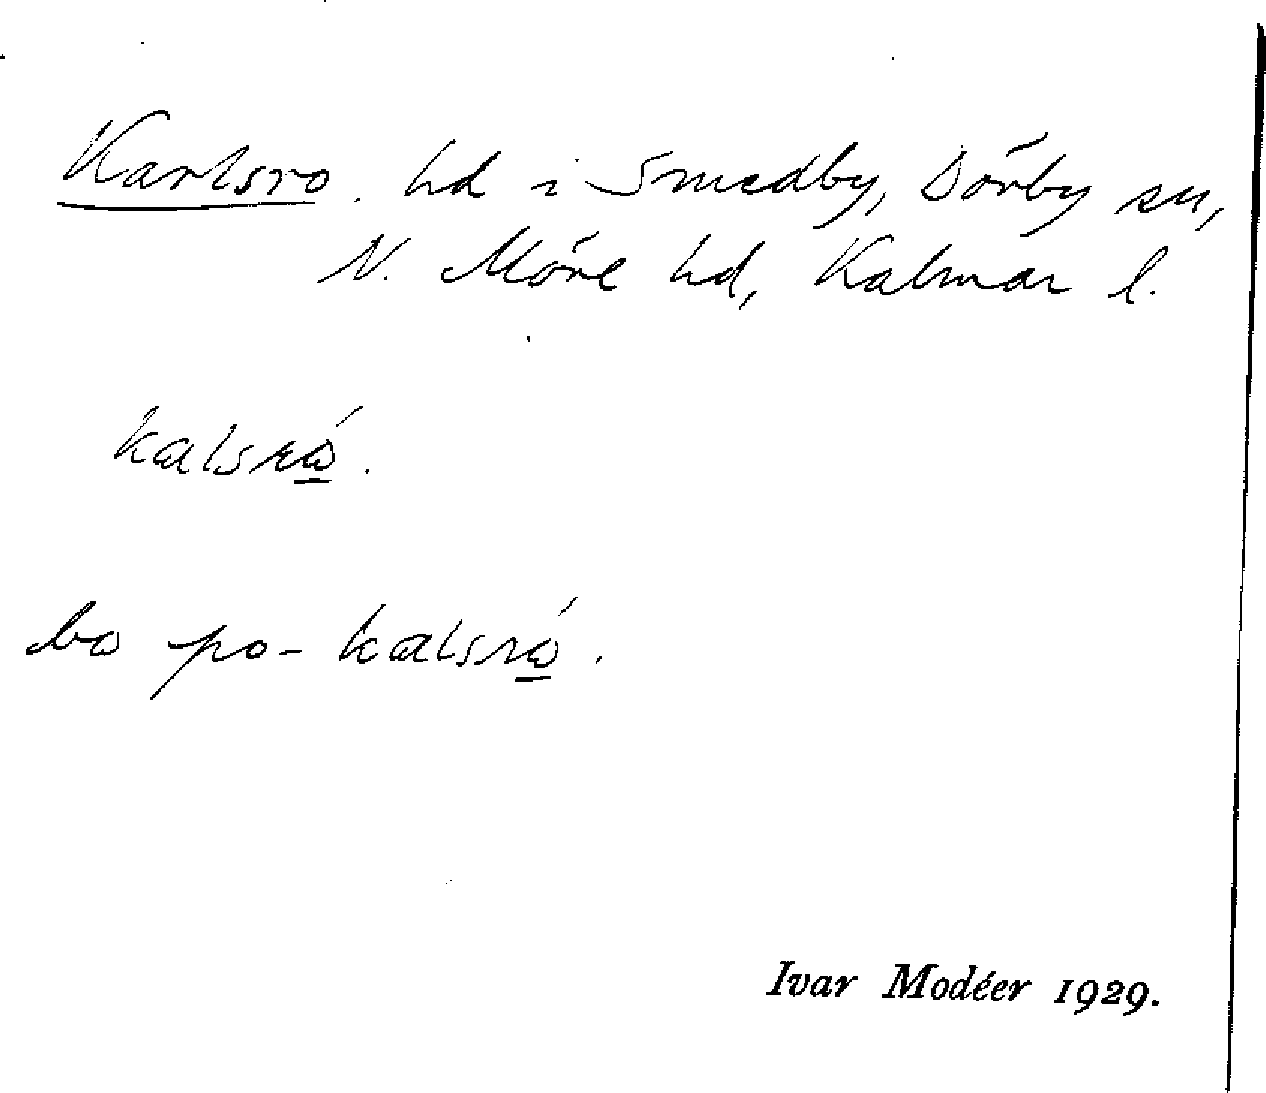 Karlsro. hd i Smedby, Dörby sn,
N. Möre hd, Kalmar l.
kalsrό.
bo po- kalsrό.
Ivar Modéer 1929.